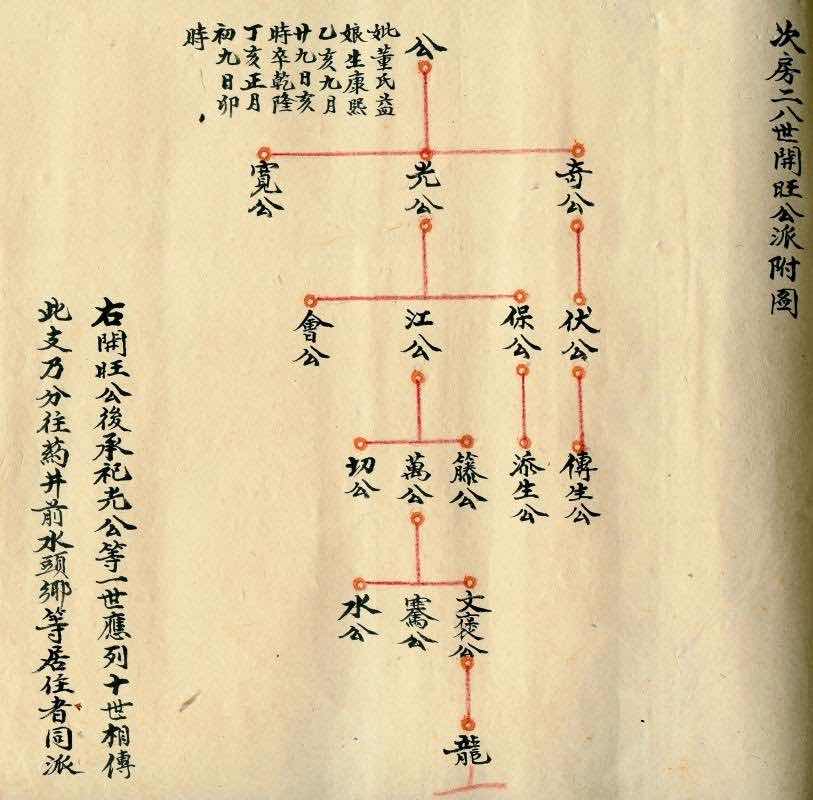 次房二八世開旺公派附圖
公
妣董氏益
娘生康熙
乙亥九月
廿九日亥
時卒乾隆
丁亥正月
初九日卯
時
奇公
光公
寬公
伏公
保公
江公
會公
傳生公
添生公
籐公
萬公
切公
文褒公
騫公
水公
龍
右開旺公後承祀光公等一世應列十世相傳
此支乃分往藔井前水頭鄉等居住者同派